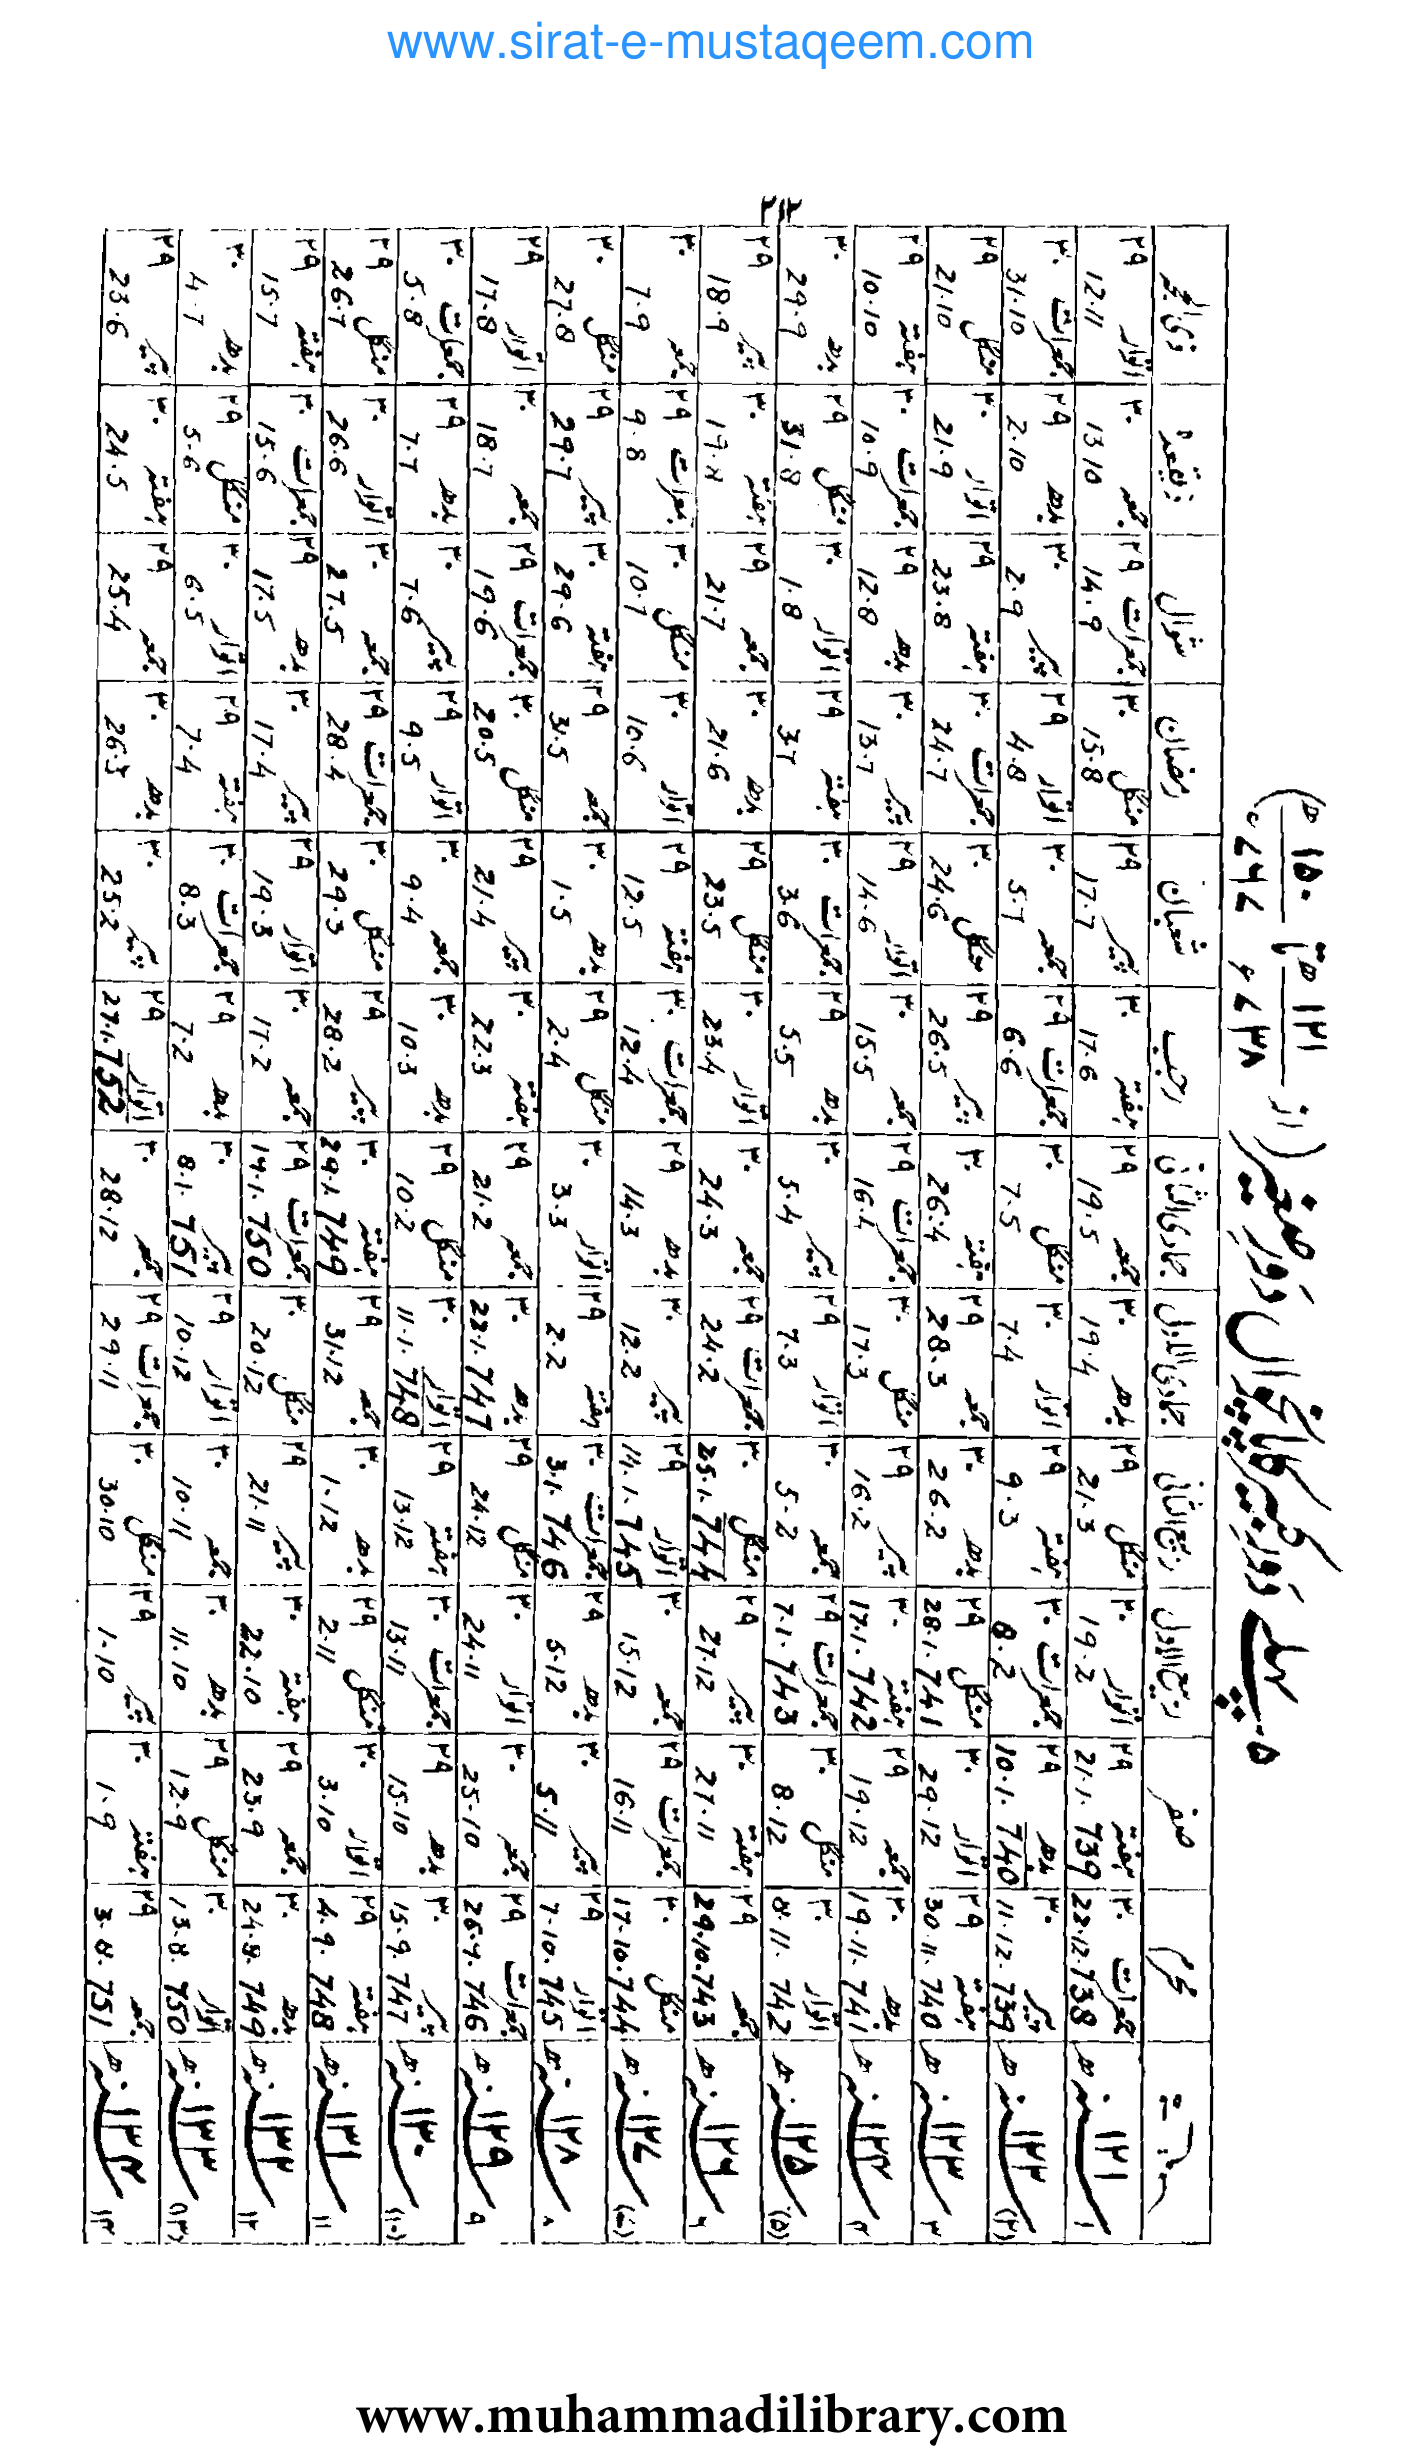 www.sirat-e-mustaqeem.com
۲۱۲
۵۔ پہلے دَورِ کبیر کا پانچواں دَورِ صغیر (از ۱۲۱ھ تا ۱۵۰ھ
۷۳۸ء ۷۶۷ء)
محرم صفر ربیع الاول ربیع الثانی جمادی الاولیٰ جمادی الثانی رجب شعبان رمضان شوال ذیقعدہ ذی الحجہ
۱ ۱۲۱ھ جمعرات ۳۰ 22.12.738 ہفتہ ۲۹ 21.1.739 اتوار ۳۰ 19.2 منگل ۲۹ 21.3 بدھ ۳۰ 19.4 جمعہ ۲۹ 19.5 ہفتہ ۳۰ 17.6 پیر ۲۹ 17.7 منگل ۳۰ 15.8 جمعرات ۲۹ 14.9 جمعہ ۳۰ 13.10 اتوار ۲۹ 12.11
(۲) ۱۲۲ھ پیر ۳۰ 11.12.739 بدھ ۲۹ 10.1.740 جمعرات ۳۰ 8.2 ہفتہ ۲۹ 9.3 اتوار ۳۰ 7.4 منگل ۳۰ 7.5 جمعرات ۲۹ 6.6 جمعہ ۳۰ 5.7 اتوار ۲۹ 4.8 پیر ۳۰ 2.9 بدھ ۲۹ 2.10 جمعرات ۳۰ 31.10
۳ ۱۲۳ھ ہفتہ ۲۹ 30.11.740 اتوار ۳۰ 29.12 منگل ۲۹ 28.1.741 بدھ ۳۰ 26.2 جمعہ ۲۹ 28.3 ہفتہ ۳۰ 26.4 پیر ۲۹ 26.5 منگل ۳۰ 24.6 جمعرات ۳۰ 24.7 ہفتہ ۲۹ 23.8 اتوار ۳۰ 21.9 منگل ۲۹ 21.10
۴ ۱۲۴ھ بدھ ۳۰ 19.11.741 جمعہ ۲۹ 19.12 ہفتہ ۳۰ 17.1.742 پیر ۲۹ 16.2 منگل ۳۰ 17.3 جمعرات ۲۹ 16.4 جمعہ ۳۰ 15.5 اتوار ۲۹ 14.6 پیر ۳۰ 13.7 بدھ ۲۹ 12.8 جمعرات ۳۰ 10.9 ہفتہ ۲۹ 10.10
(۵) ۱۲۵ھ اتوار ۳۰ 8.11.742 منگل ۳۰ 8.12 جمعرات ۲۹ 7.1.743 جمعہ ۳۰ 5.2 اتوار ۲۹ 7.3 پیر ۳۰ 5.4 بدھ ۳۰ 5.5 جمعرات ۳۰ 3.6 ہفتہ ۲۹ 3.7 اتوار ۳۰ 1.8 منگل ۲۹ 31.8 بدھ ۳۰ 29.9
۶ ۱۲۶ھ جمعہ ۲۹ 29.10.743 ہفتہ ۳۰ 27.11 پیر ۲۹ 27.12 منگل ۳۰ 25.1.744 جمعرات ۲۹ 24.2 جمعہ ۳۰ 24.3 اتوار ۳۰ 23.4 منگل ۲۹ 23.5 بدھ ۳۰ 21.6 جمعہ ۲۹ 21.7 ہفتہ ۳۰ پیر ۲۹ 18.9
(۷) ۱۲۷ھ منگل ۳۰ 17.10.744 جمعرات ۲۹ 16.11 جمعہ ۳۰ 15.12 اتوار ۲۹ 14.1.745 پیر ۳۰ 12.2 بدھ ۲۹ 14.3 جمعرات ۳۰ 12.4 ہفتہ ۲۹ 12.5 اتوار ۳۰ 10.6 منگل ۳۰ 10.7 جمعرات ۲۹ 9.8 جمعہ ۳۰ 7.9
۸ ۱۲۸ھ اتوار ۲۹ 7.10.745 پیر ۳۰ 5.11 بدھ ۲۹ 5.12 جمعرات ۳۰ 3.1.746 ہفتہ ۲۹ 2.2 اتوار ۳۰ 3.3 منگل ۲۹ 2.4 بدھ ۳۰ 1.5 جمعہ ۲۹ 31.5 ہفتہ ۳۰ 29.6 پیر ۲۹ 29.7 منگل ۳۰ 27.8
۹ ۱۲۹ھ جمعرات ۲۹ 26.9.746 جمعہ ۳۰ 25.10 اتوار ۳۰ 24.11 منگل ۲۹ 24.12 بدھ ۳۰ 22.1.747 جمعہ ۲۹ 21.2 ہفتہ ۳۰ 22.3 پیر ۲۹ 21.4 منگل ۳۰ 20.5 جمعرات ۲۹ 19.6 جمعہ ۳۰ 18.7 اتوار ۲۹ 17.8
(۱۰) ۱۳۰ھ پیر ۳۰ 15.9.747 بدھ ۲۹ 15.10 جمعرات ۳۰ 13.11 ہفتہ ۲۹ 13.12 اتوار ۳۰ 11.1.748 منگل ۲۹ 10.2 بدھ ۳۰ 10.3 جمعہ ۳۰ 9.4 اتوار ۲۹ 9.5 پیر ۳۰ 7.6 بدھ ۲۹ 7.7 جمعرات ۳۰ 5.8
۱۱ ۱۳۱ھ ہفتہ ۲۹ 4.9.748 اتوار ۳۰ 3.10 منگل ۲۹ 2.11 بدھ ۳۰ 1.12 جمعہ ۲۹ 31.12 ہفتہ ۳۰ 29.1.749 پیر ۲۹ 28.2 منگل ۳۰ 29.3 جمعرات ۲۹ 28.4 جمعہ ۳۰ 27.5 اتوار ۳۰ 26.6 منگل ۲۹ 26.7
۱۲ ۱۳۲ھ بدھ ۳۰ 24.8.749 جمعہ ۲۹ 23.9 ہفتہ ۳۰ 22.10 پیر ۲۹ 21.11 منگل ۳۰ 20.12 جمعرات ۲۹ 19.1.750 جمعہ ۳۰ 17.2 اتوار ۲۹ 19.3 پیر ۳۰ 17.4 بدھ ۲۹ 17.5 جمعرات ۳۰ 15.6 ہفتہ ۲۹ 15.7
(۱۳) ۱۳۳ھ اتوار ۳۰ 13.8.750 منگل ۲۹ 12.9 بدھ ۳۰ 11.10 جمعہ ۳۰ 10.11 اتوار ۲۹ 10.12 پیر ۳۰ 8.1.751 بدھ ۲۹ 7.2 جمعرات ۳۰ 8.3 ہفتہ ۲۹ 7.4 اتوار ۳۰ 6.5 منگل ۲۹ 5.6 بدھ ۳۰ 4.7
۱۴ ۱۳۴ھ جمعہ ۲۹ 3.8.751 ہفتہ ۳۰ 1.9 پیر ۲۹ 1.10 منگل ۳۰ 30.10 جمعرات ۲۹ 29.11 جمعہ ۳۰ 28.12 اتوار ۲۹ 27.1.752 پیر ۳۰ 25.2 بدھ ۳۰ 26.3 جمعہ ۲۹ 25.4 ہفتہ ۳۰ 24.5 پیر ۲۹ 23.6
www.muhammadilibrary.com